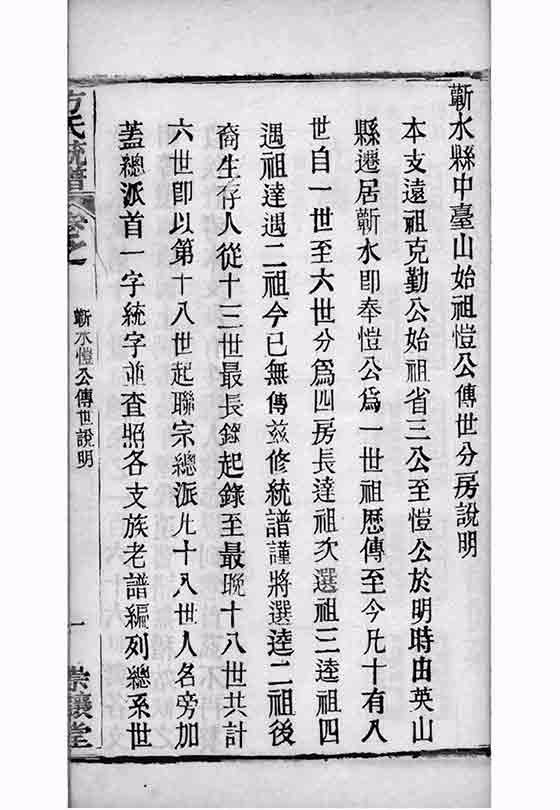 蘄水縣中臺山始祖愷公傳世分房說明
本支遠祖克勤公始祖省三公至愷公於明時由英山
縣遷居蘄水即奉愷公爲一世祖歷傳至今凡十有八
世自一世至六世分爲四房長達祖次選祖三逵祖四
遇祖達遇二祖今已無傳兹修統譜謹將選逵二祖後
裔生存人從十三世最長錄起錄至最晚十八世共計
六世即以第十八世起聯宗總派凡十八世人名旁加
蓋總派首一字統字並查照各支族老譜編列總系世
方氏統譜
卷之
蘄水愷公傳世說明
一
崇讓堂